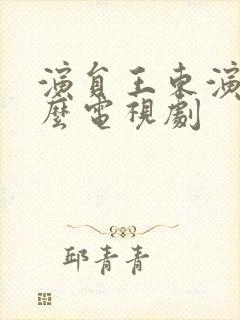 演員王東演
麼電視劇
邱青青